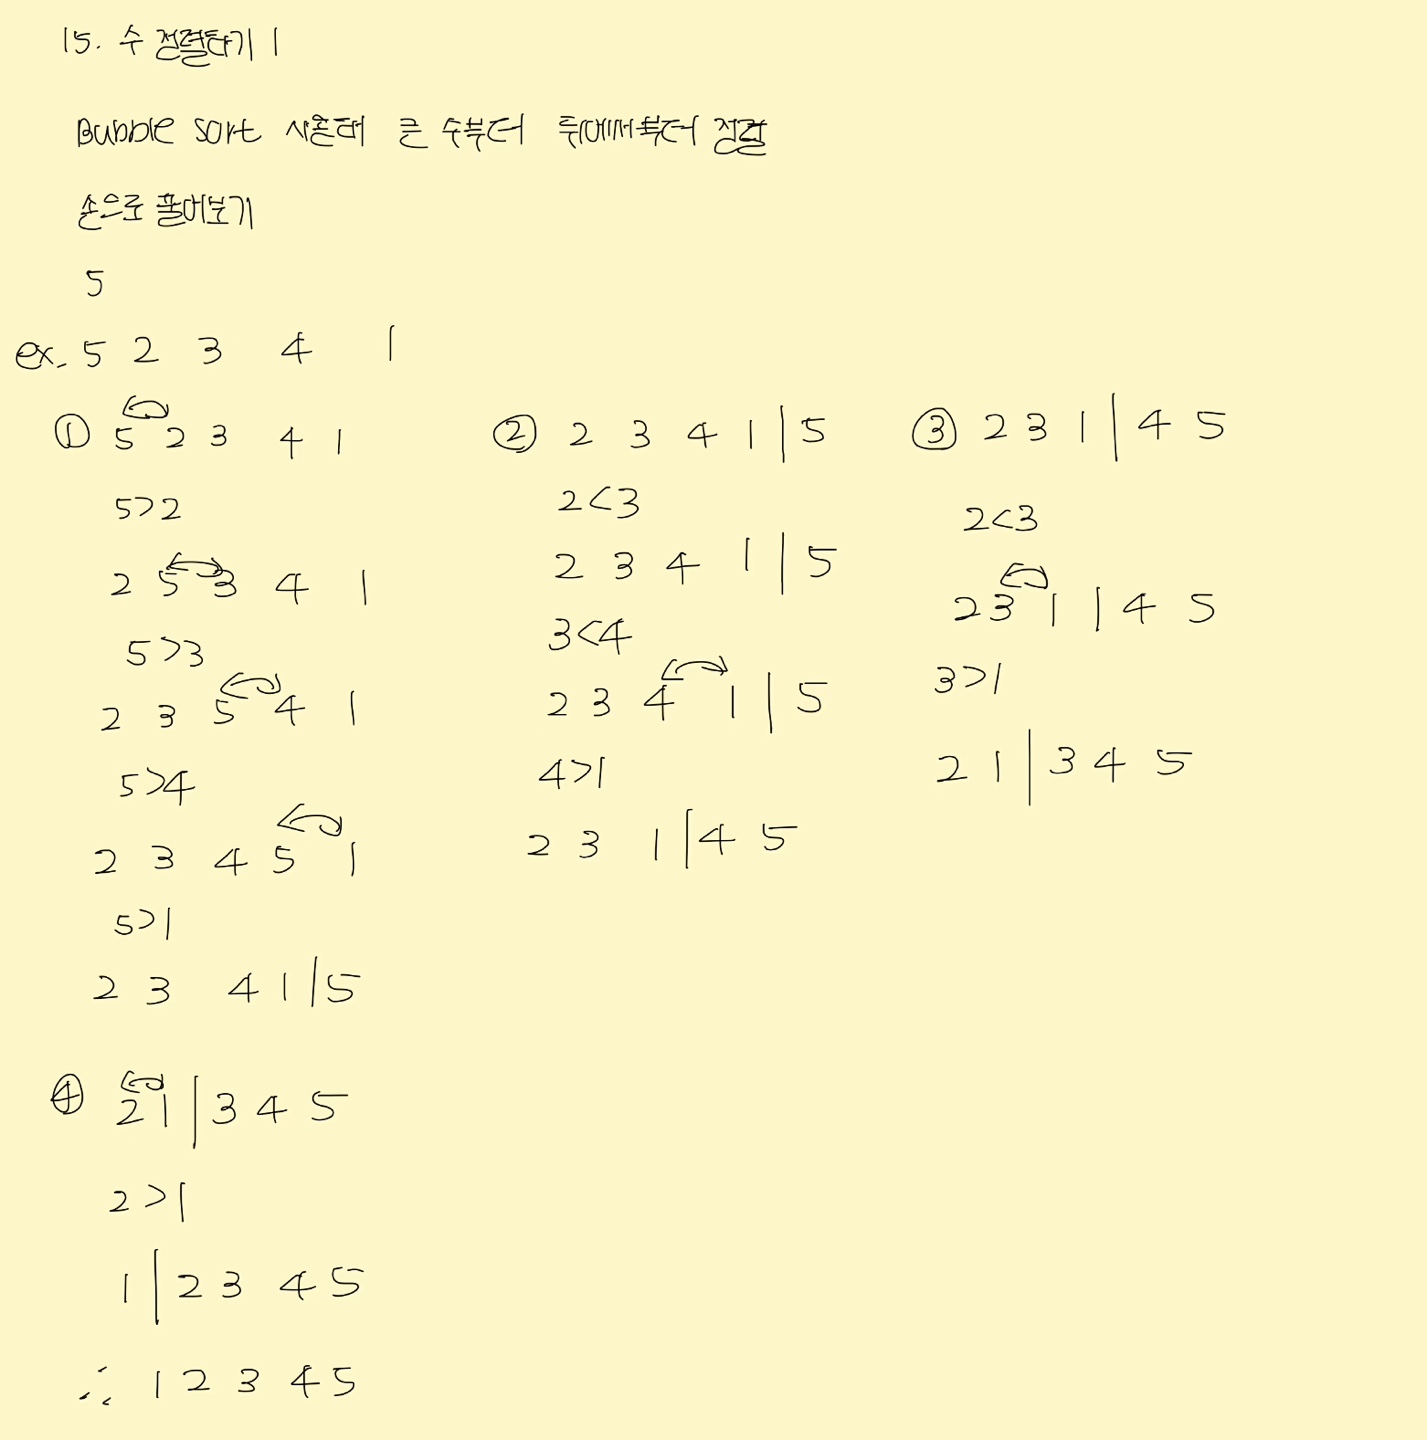 15. 수 정렬하기 1
Bubble sort 사용해 큰 수부터 뒤에서부터 정렬
손으로 풀어보기
5
ex. 5 2 3 4 1
① 5 2 3 4 1
5>2
2 5 3 4 1
5>3
2 3 5 4 1
5>4
2 3 4 5 1
5>1
2 3 4 1 | 5
② 2 3 4 1 | 5
2<3
2 3 4 1 | 5
3<4
2 3 4 1 | 5
4>1
2 3 1 | 4 5
③ 2 3 1 | 4 5
2<3
2 3 1 | 4 5
3>1
2 1 | 3 4 5
④ 2 1 | 3 4 5
2>1
1 | 2 3 4 5
∴ 1 2 3 4 5